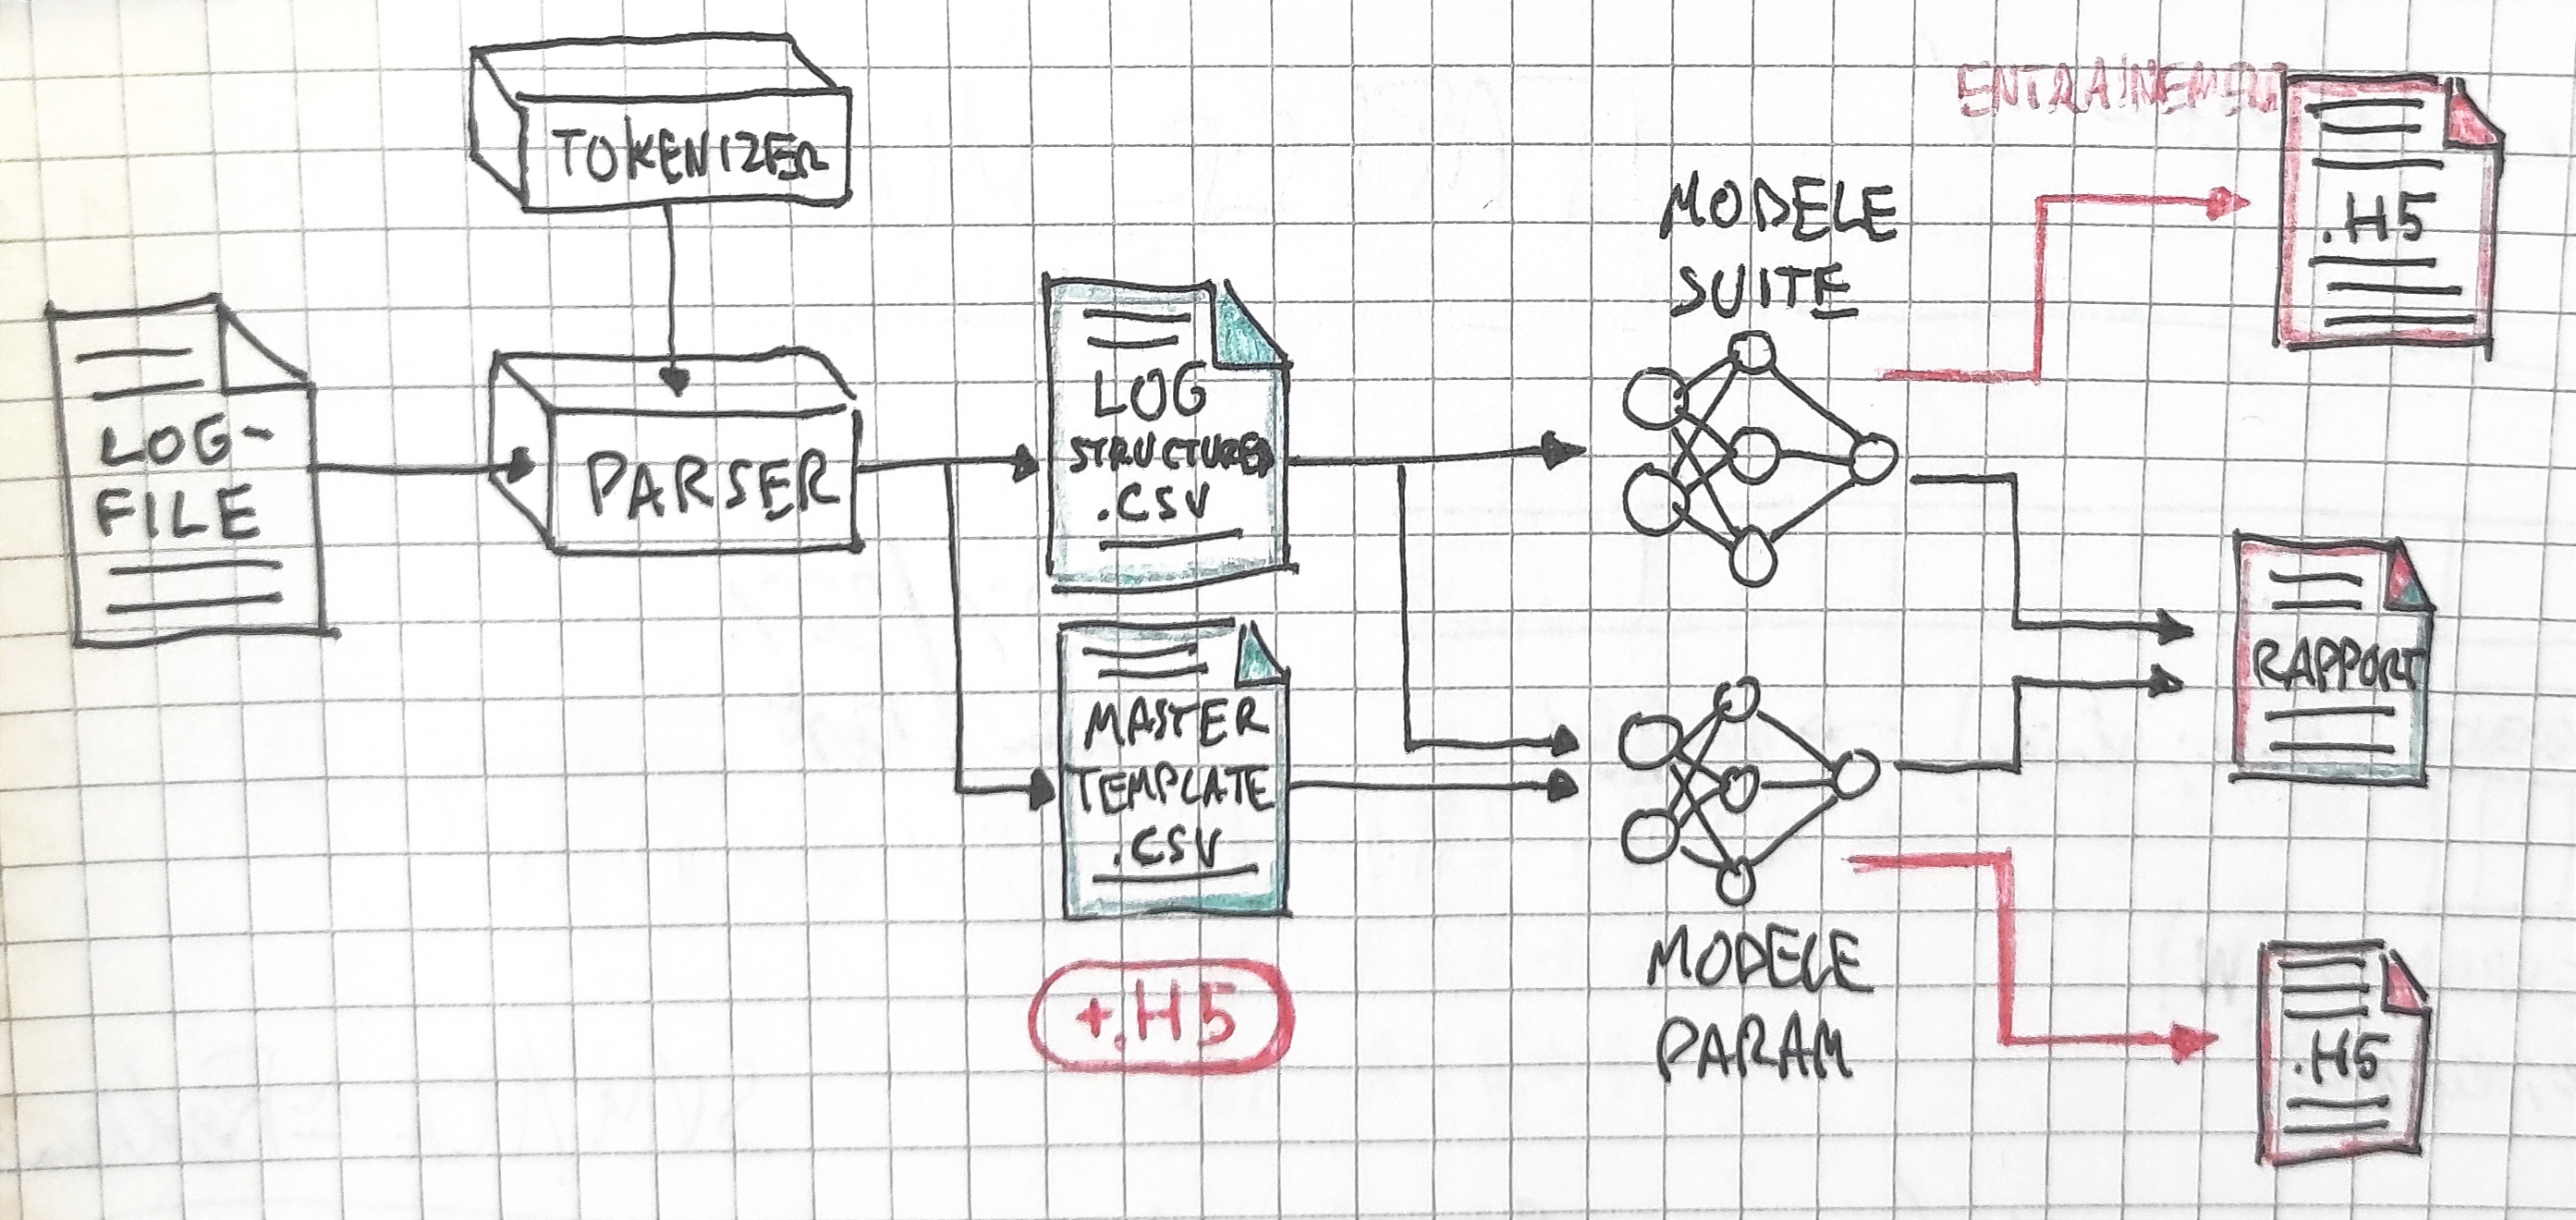 TOKENIZER
LOG-
FILE
PARSER
LOG
STRUCTURED
.CSV
MASTER
TEMPLATE
.CSV
+.H5
MODELE
SUITE
MODELE
PARAM
ENTRAINEMENT
.H5
RAPPORT
.H5